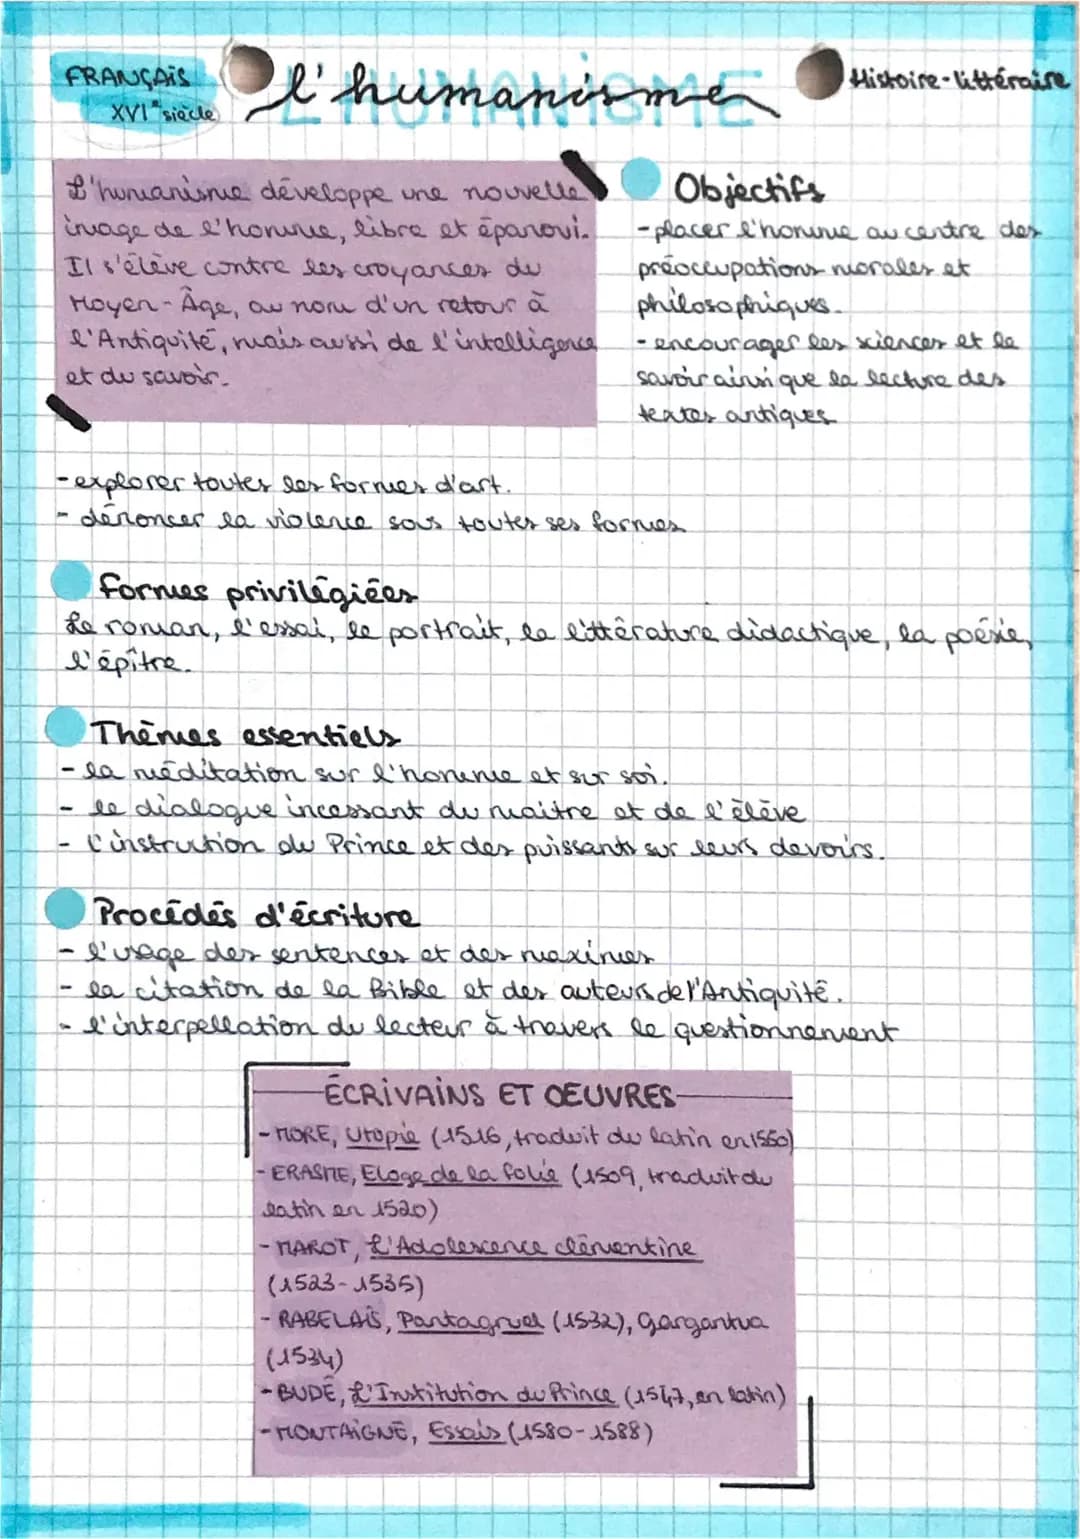 FRANÇAIS
XVIe siècle
L'HUMANISME
l'humanisme
Histoire-littéraire
L'humanisme développe une nouvelle
image de l'homme, libre et épanoui.
Il s'élève contre les croyances du
Moyen-Âge, au nom d'un retour à
l'Antiquité, mais aussi de l'intelligence
et du savoir.
Objectifs
- placer l'homme au centre des
préoccupations morales et
philosophiques.
- encourager les sciences et le
savoir ainsi que la lecture des
textes antiques
- explorer toutes les formes d'art.
- dénoncer la violence sous toutes ses formes
Formes privilégiées
Le roman, l'essai, le portrait, la littérature didactique, la poésie,
l'épître.
Thèmes essentiels
- la méditation sur l'homme et sur soi.
- le dialogue incessant du maitre et de l'élève
- l'instruction du Prince et des puissants sur leurs devoirs.
Procédés d'écriture
- l'usage des sentences et des maximes
- la citation de la Bible et des auteurs de l'Antiquité.
- l'interpellation du lecteur à travers le questionnement
ÉCRIVAINS ET OEUVRES
- MORE, Utopie (1516, traduit du latin en 1550)
- ERASME, Eloge de la folie (1509, traduit du
latin en 1520)
- MAROT, L'Adolescence clémentine
(1523-1535)
- RABELAIS, Pantagruel (1532), Gargantua
(1534)
- BUDÉ, L'Institution du Prince (1547, en latin)
- MONTAIGNE, Essais (1580-1588)